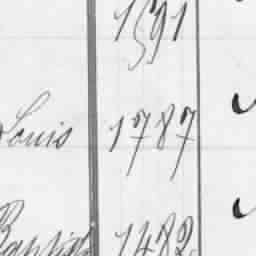 1591
Louis 1787
Baptist 1482